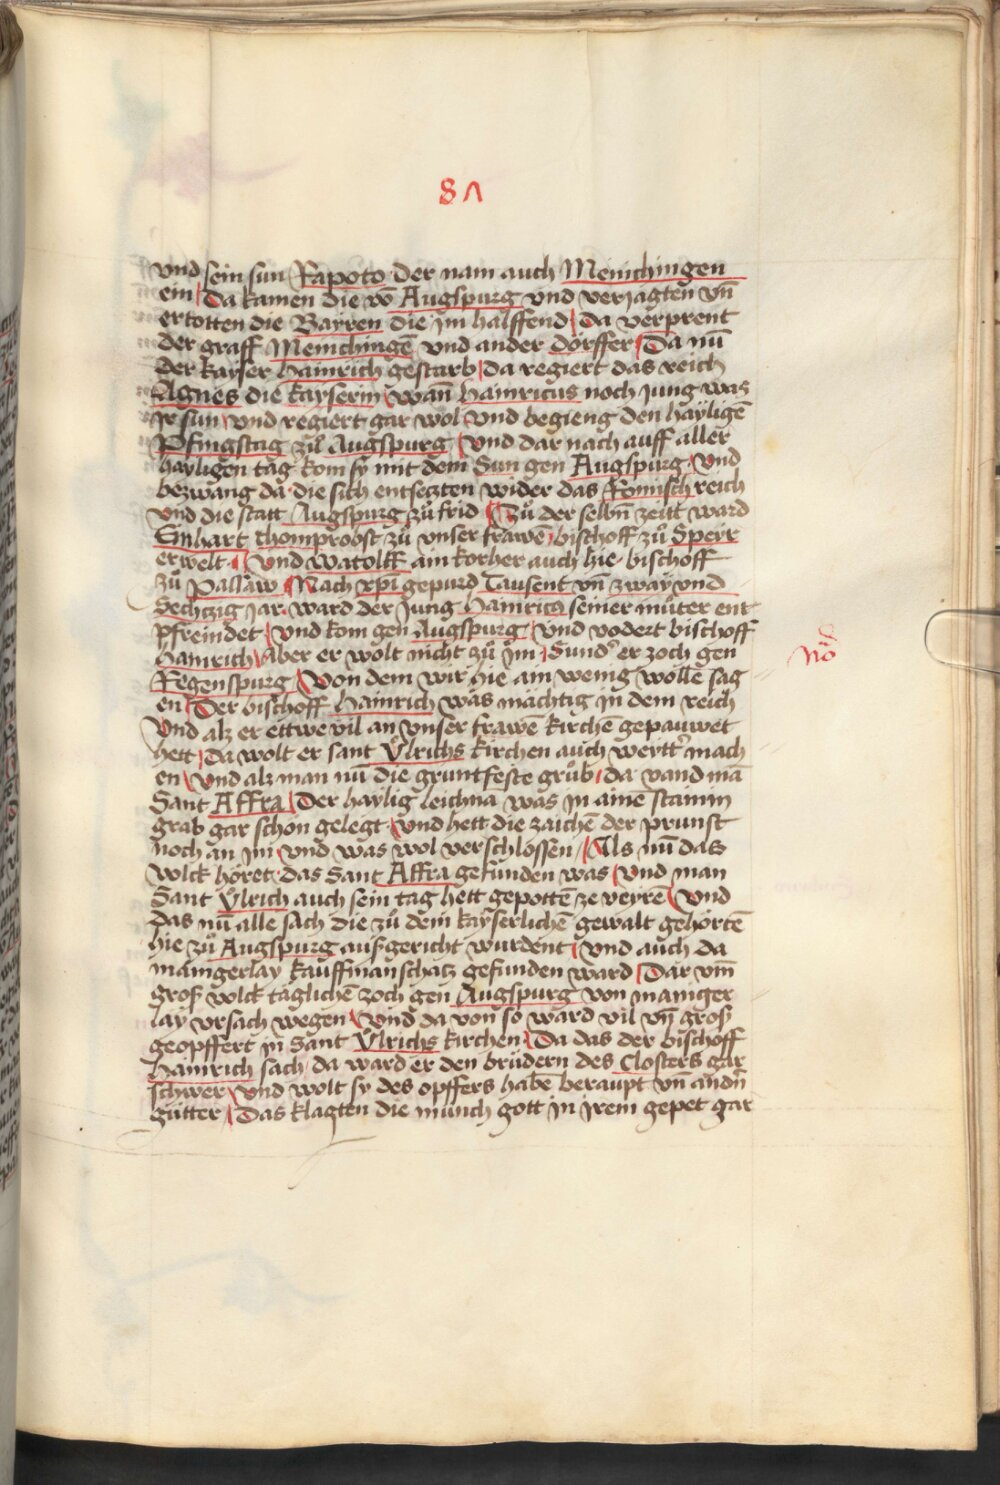 8Λ
vnd sein sun Rapoto der nam auch Menichingen
ein / Da kamen die vō Augspurg vnd veriagten vn̄
ertotten die Bayren die im halffend / Da verprent
der graff Menichingē vnd ander dörffer / Da nū
der kayser Hainrich gestarb / da regiert das reich
Agnes die kayserin / wan̄ Hainricus noch jung was
jr sun / vnd regiert gar wol vnd begieng den hayligē
Pfingstag zū Augspurg / vnd dar nach auff aller
hayligen tag kom sy mit dem Sun gen Augspurg / vnd
bezwang da die sich entseczten wider das Romisch reich
vnd die statt Augspurg zů frid / Zů der selbn̄ zeitt ward
Einhart thomprobst zů vnser frawē bischoff zů Speyr
erwelt / vnd watolff ain korher auch hie bischoff
zů Passaw / Nach xp̄i gepurd Tausent vn̄ zway vnd
Sechtzig jar ward der jung Hainricus seiner můter ent
pfreindet / vnd kom gen Augspurg / vnd vodert bischoff
Hainrich / Aber er wolt nicht zů jm / Sund' er zoch gen
No
Regenspurg / Von dem wir hie ain wenig wölle sag
en / Der bischoff Hainrich was mächtig in dem reich
Vnd alz er ettwe vil an vnser frawē kirchē gepauwet
hett / Da wolt er sant Vͦlrichs kirchen auch weytt' mach
en / vnd alz man nū die gruntfeste grůb / da vand mā
Sant Affra / Der haylig leichnā was in ainē stainin
grab gar schon gelegt / vnd hett die zaichē der prunst
noch an im / vnd was wol verschlossen / Als nū das
volck höret das Sant Affra gefunden was / vnd man
Sant Vͦlrich auch sein tag hett gepottē ze veyrē / vnd
das nū alle sach die zů dem kayserlichē gewalt gehortē
hie zů Augspurg außgericht wurdent / vnd auch da
maingerlay kauffmanschatz gefunden ward / Dar vm̄
groß volck täglichē zoch gen Augspurg von maniger
lay vrsach wegen / vnd da von so ward vil vn̄ groß
geopffert in Sant Vlrichs kirchen / Da das der bischoff
Hainrich sach / da ward er den brüdern des Closters gar
schwer / vnd wolt sy des opffers habē beraupt vn̄ andn̄
gütter / Das klagten die münch gott in irem gepet gar